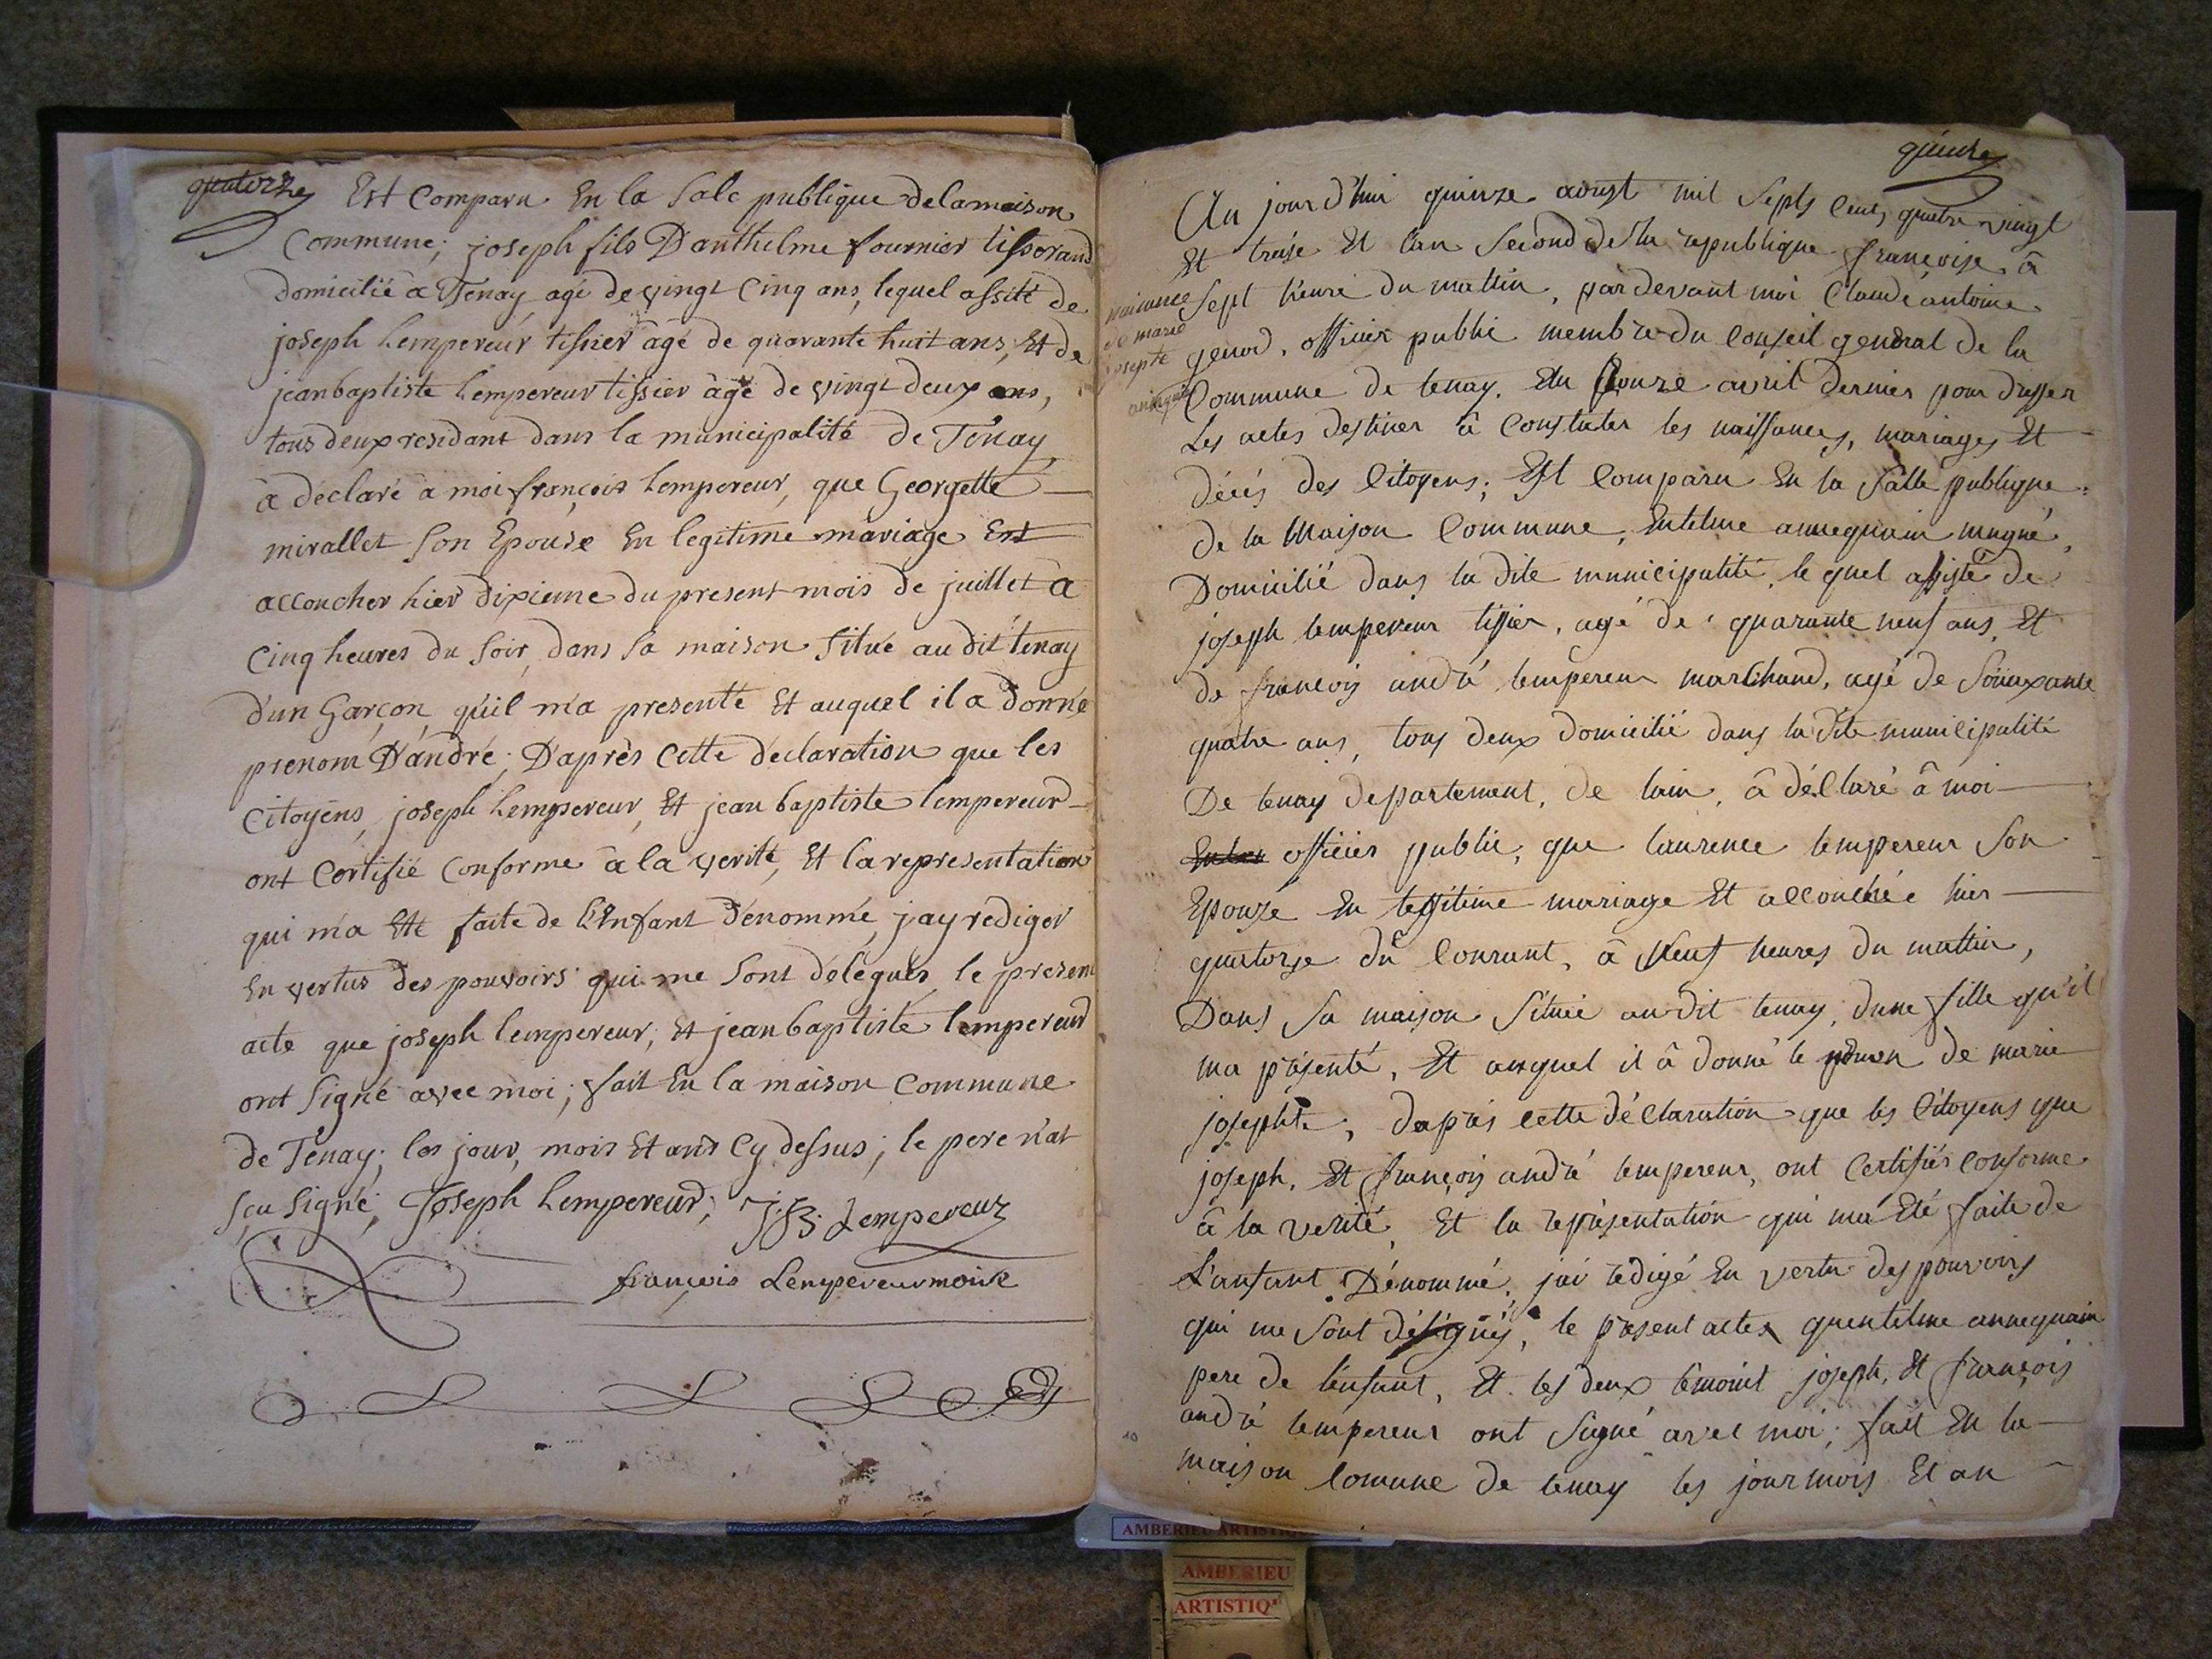 quatorze
Est Comparu En la Sale publique de la maison
Commune; joseph fils D'anthelme fournier tisserand
domicilié à Tenay agé de vingt Cinq ans, lequel assité de
joseph Lempereur tissier âgé de quarante huit ans, Et de
jean baptiste Lempereur tissier âgé de vingt deux ans,
tous deux residant dans la municipalité de Tenay
à déclaré à moi françois Lempereur, que Georgette
mirallet Son Epouse En legitime mariage Est
accoucher hier dixieme du present mois de juillet à
Cinq heures du Soir, dans Sa maison Situé au dit tenay
d'un Garçon, qu'il m'a presenté Et auquel il a donné
prenom D'andré; D'après Cette declaration que les
Citoyens, joseph Lempereur, Et jean baptiste lempereur
ont Certifié Conforme à la verité, Et la representation
qui m'a Eté faite de l'Enfant dénommé, j'ay rediger
En vertus des pouvoirs qui me Sont délégués, le present
acte que joseph lempereur, Et jean baptiste lempereur
ont Signé avec moi; fait En la maison Commune
de Tenay; les jour, mois Et ans Cy dessus; le pere n'at
Scu Signé; Joseph Lempereur; J:B: Lempereur
françois Lempereur moine
quinze
Au jourd'hui quinze aoust mil Septs Cents quatre vingt
Et treise Et l'an Second de la republique françoise à
Sept heure du mattin, par devant moi Claude antoine
genod, officier public membre du Conseil general de la
Commune de tenay. Elu douze avril dernier pour dresser
Les actes destiner à Constater les naissances, mariages Et
décés des Citoyens; Est Comparu En la Salle publique
de la Maison Commune, Entelme annequain
Domicilié dans la dite municipalité, le quel assisté de
joseph lempereur tissier, agé de quarante neuf ans, Et
de françois andré lempereur marchand, agé de Soixante
quatre ans, tous deux domicilié dans la dite municipalité
De tenay departement, de lain, à déclaré à moi
officier public, que laurence lempereur Son
Epouze En legitime mariage Et accouchée hier
quatorze du Courant, à Neuf heures du mattin,
Dans Sa maison Située au dit tenay, dune fille qu'il
ma présenté, Et auquel il à donné le de marie
josephte; dapres cette déclaration que les Citoyens que
joseph, Et françois andré lempereur, ont Certifiés Conforme
à la verité, Et la représentation qui ma Eté faite de
L'anfant Dénommé, jai redigé En vertu des pouvoirs
qui me Sont désignés, le présent acte quentelme annequain
pere de l'enfant, Et les deux témoint joseph, Et françois
andré lempereur ont Signé avec moi; fait En la
maison Comune de tenay les jour mois Et an
naisance
de marie
josepte
10
AMBERIEU ARTISTIQUE
AMBERIEU
ARTISTIQ'